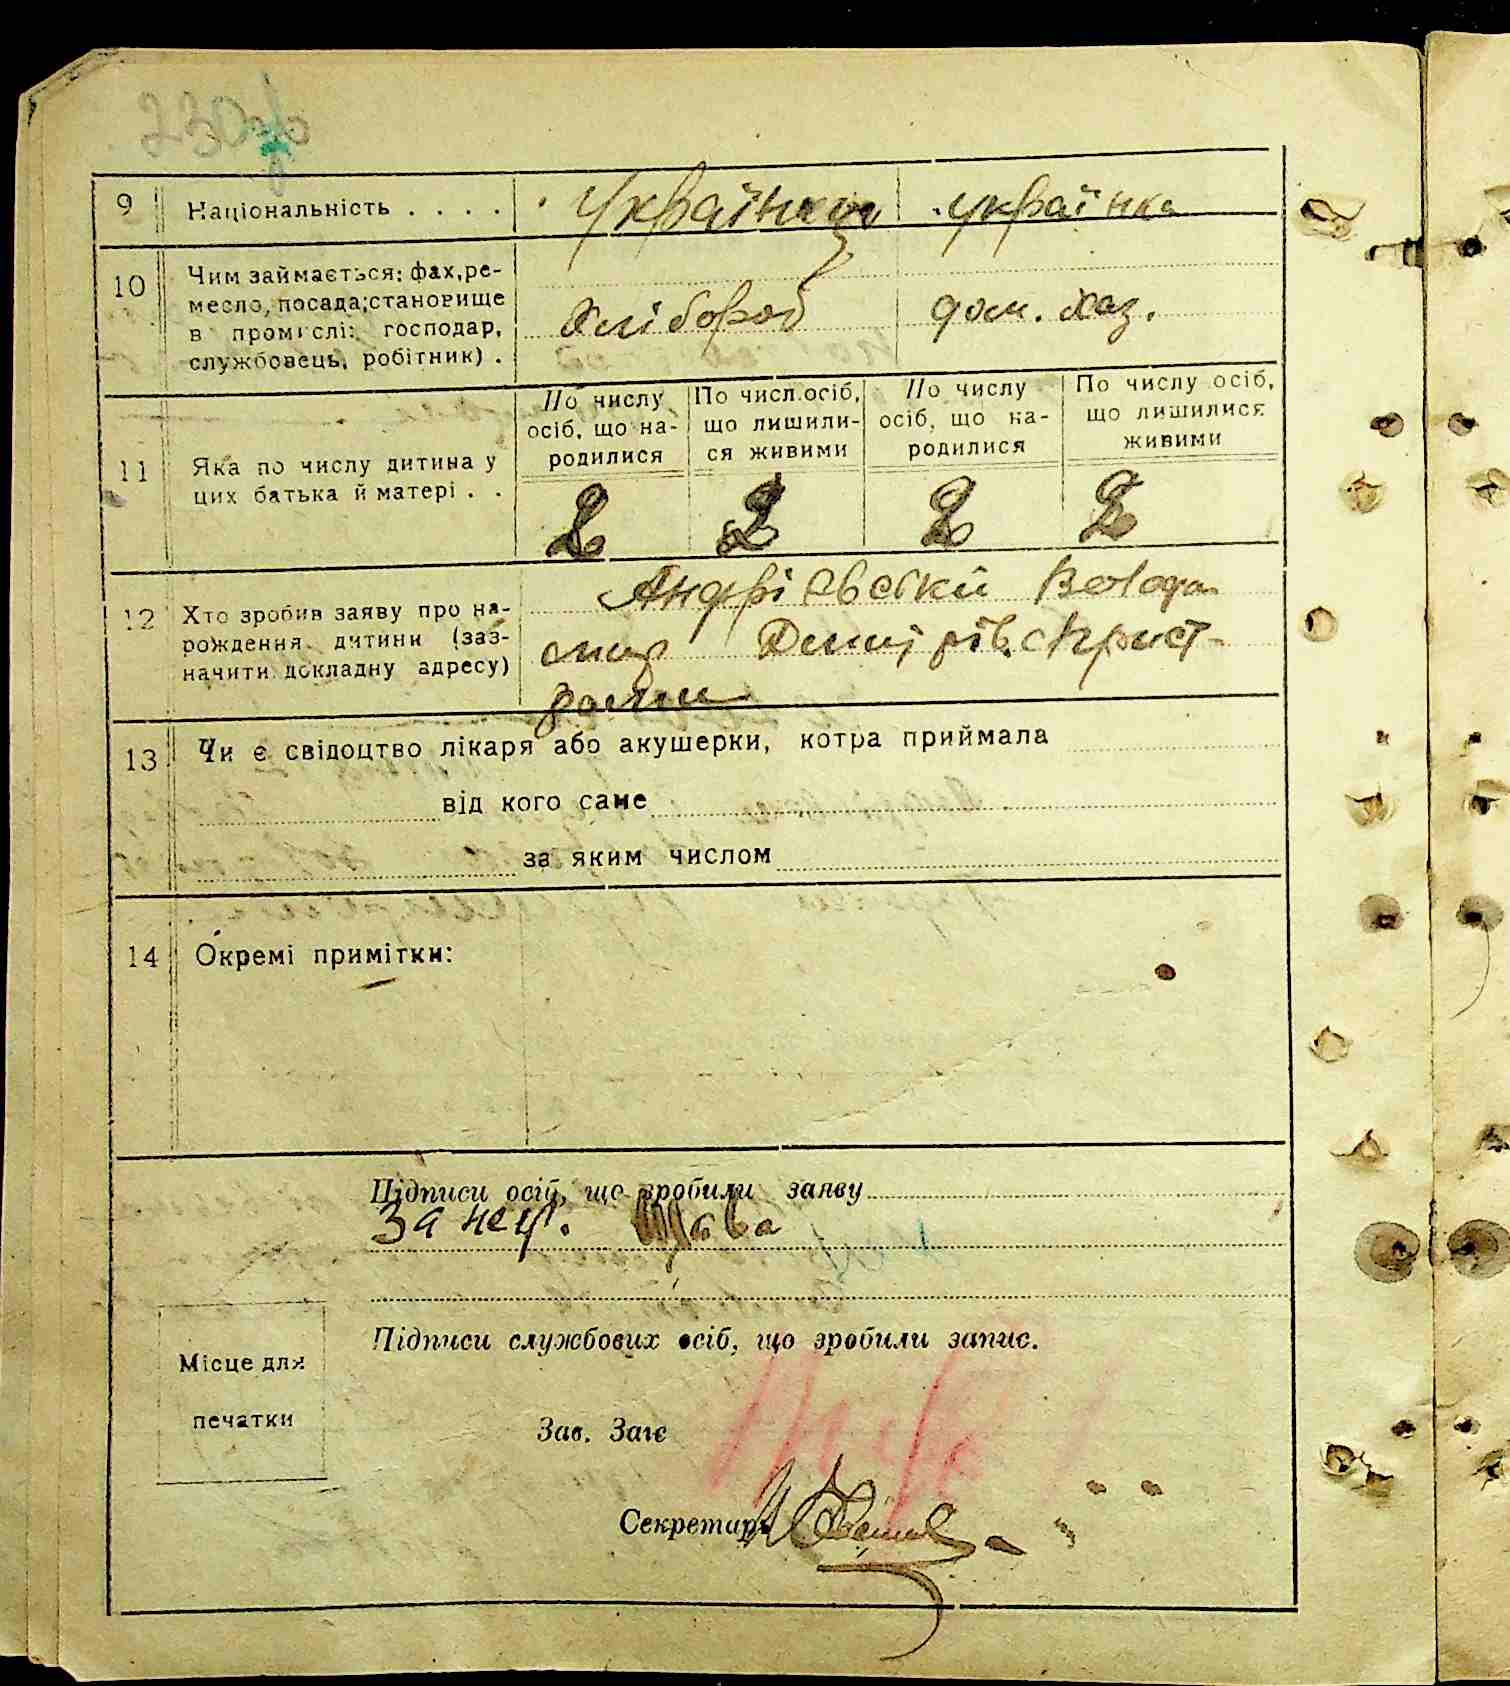 230
9 Національність . . . . Українець українка
10 Чим займається: фах, ре-
месло, посада; становище
в промислі: господар,
службовець, робітник) .
Хлібороб дом. хаз.
11 Яка по числу дитина у
цих батька й матері . .
По числу
осіб, що на-
родилися
По числ. осіб,
що лишили-
ся живими
По числу
осіб, що на-
родилися
По числу осіб,
що лишилися
живими
2 2 2 2
12 Хто зробив заяву про на-
рождення дитини (заз-
начити докладну адресу)
Андрієвський Володи
мир
13 Чи є свідоцтво лікаря або акушерки, котра приймала
від кого саме
за яким числом
14 Окремі примітки:
Підписи осіб, що зробили заяву
За неп.
Підписи службових осіб, що зробили запис.
Місце для
печатки
Зав. Заге
Секретар